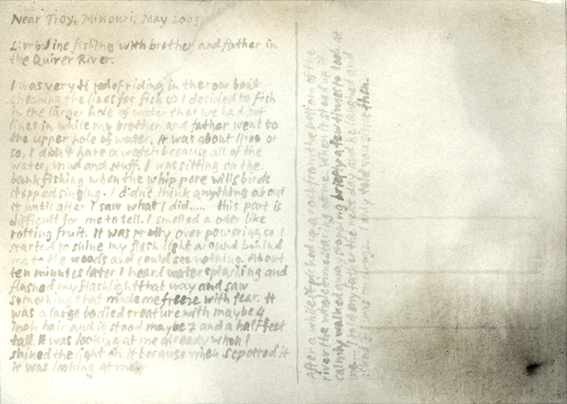 Near Troy, Missouri, May 2003
Limbline fishing with brother and father in
the Quiver River.
I was very tired of riding in the row boat
checking the lines for fish so I decided to fish
in the larger hole of water that we had set
lines in while my brother and father went to
the upper hole of water. It was about 11:00 or
so, I didn't have a watch because all of the
water, mud and stuff. I was sitting on the
bank fishing when the whip pore wills birds
stopped singing. I didn't think anything about
it until after I saw what I did..... this part is
difficult for me to tell. I smelled a oder like
rotting fruit. It was pretty over powering so I
started to shine my flash light around behind
me to the woods and could see nothing. About
ten minutes later I heard water splashing and
flashed my flashlight that way and saw
something that made me freeze with fear. It
was a large bodied creature with maybe 4
inch hair and it stood maybe 7 and a half feet
tall. It was looking at me already when I
shined the light on it because when I spotted it
it was looking at me.
After a while it picked up a root from the bottom of the
river the whole time staring at me. When it stood up it
calmly walked away stopping briefly a few times to look at
me.... I told my father the next day and he laughed and
I only told you since then.